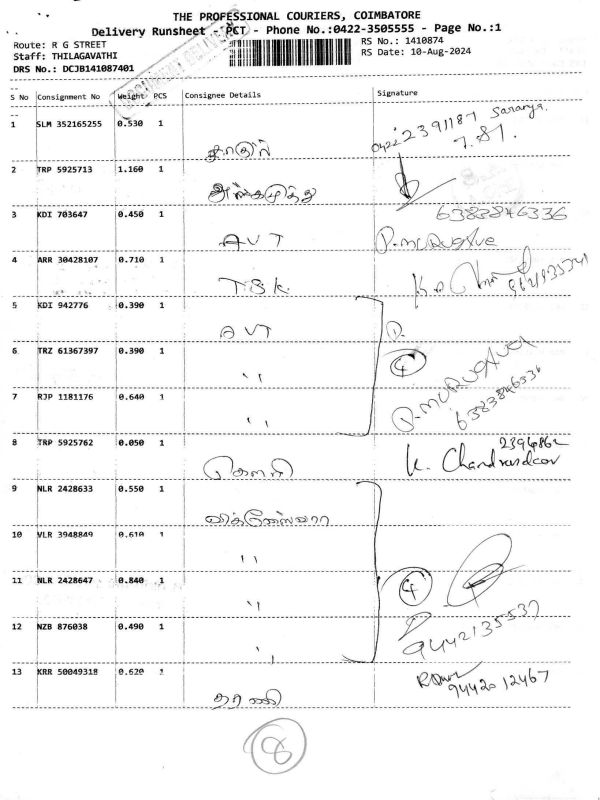 THE PROFESSIONAL COURIERS, COIMBATORE
Delivery Runsheet - PCT - Phone No.:0422-3505555 - Page No.:1
Route: R G STREET
RS No.: 1410874
Staff: THILAGAVATHI
RS Date: 10-Aug-2024
DRS No.: DCJB141087401
S No Consignment No Weight PCS Consignee Details Signature
1 SLM 352165255 0.530 1 0422 2391187 Saranya
2 TRP 5925713 1.160 1 அங்கமுத்து
6383846336
3 KDI 703647 0.450 1 AVT P.MURUGAVel
4 ARR 30428107 0.710 1 T.S.K.
5 KDI 942776 0.390 1 AVT P.
6 TRZ 61367397 0.390 1 ,, 4
7 RJP 1181176 0.640 1 ,, P.MURUGAVel
6383846336
8 TRP 5925762 0.050 1 கௌரி K. Chandrasekar
9 NLR 2428633 0.550 1 விக்னேஷ்வரா
10 VLR 3948849 0.610 1 ,,
11 NLR 2428647 0.840 1 ,, 4
12 NZB 876038 0.490 1 ,, 9442135537
13 KRR 50049318 0.620 1 தரணி 94420 12467
8